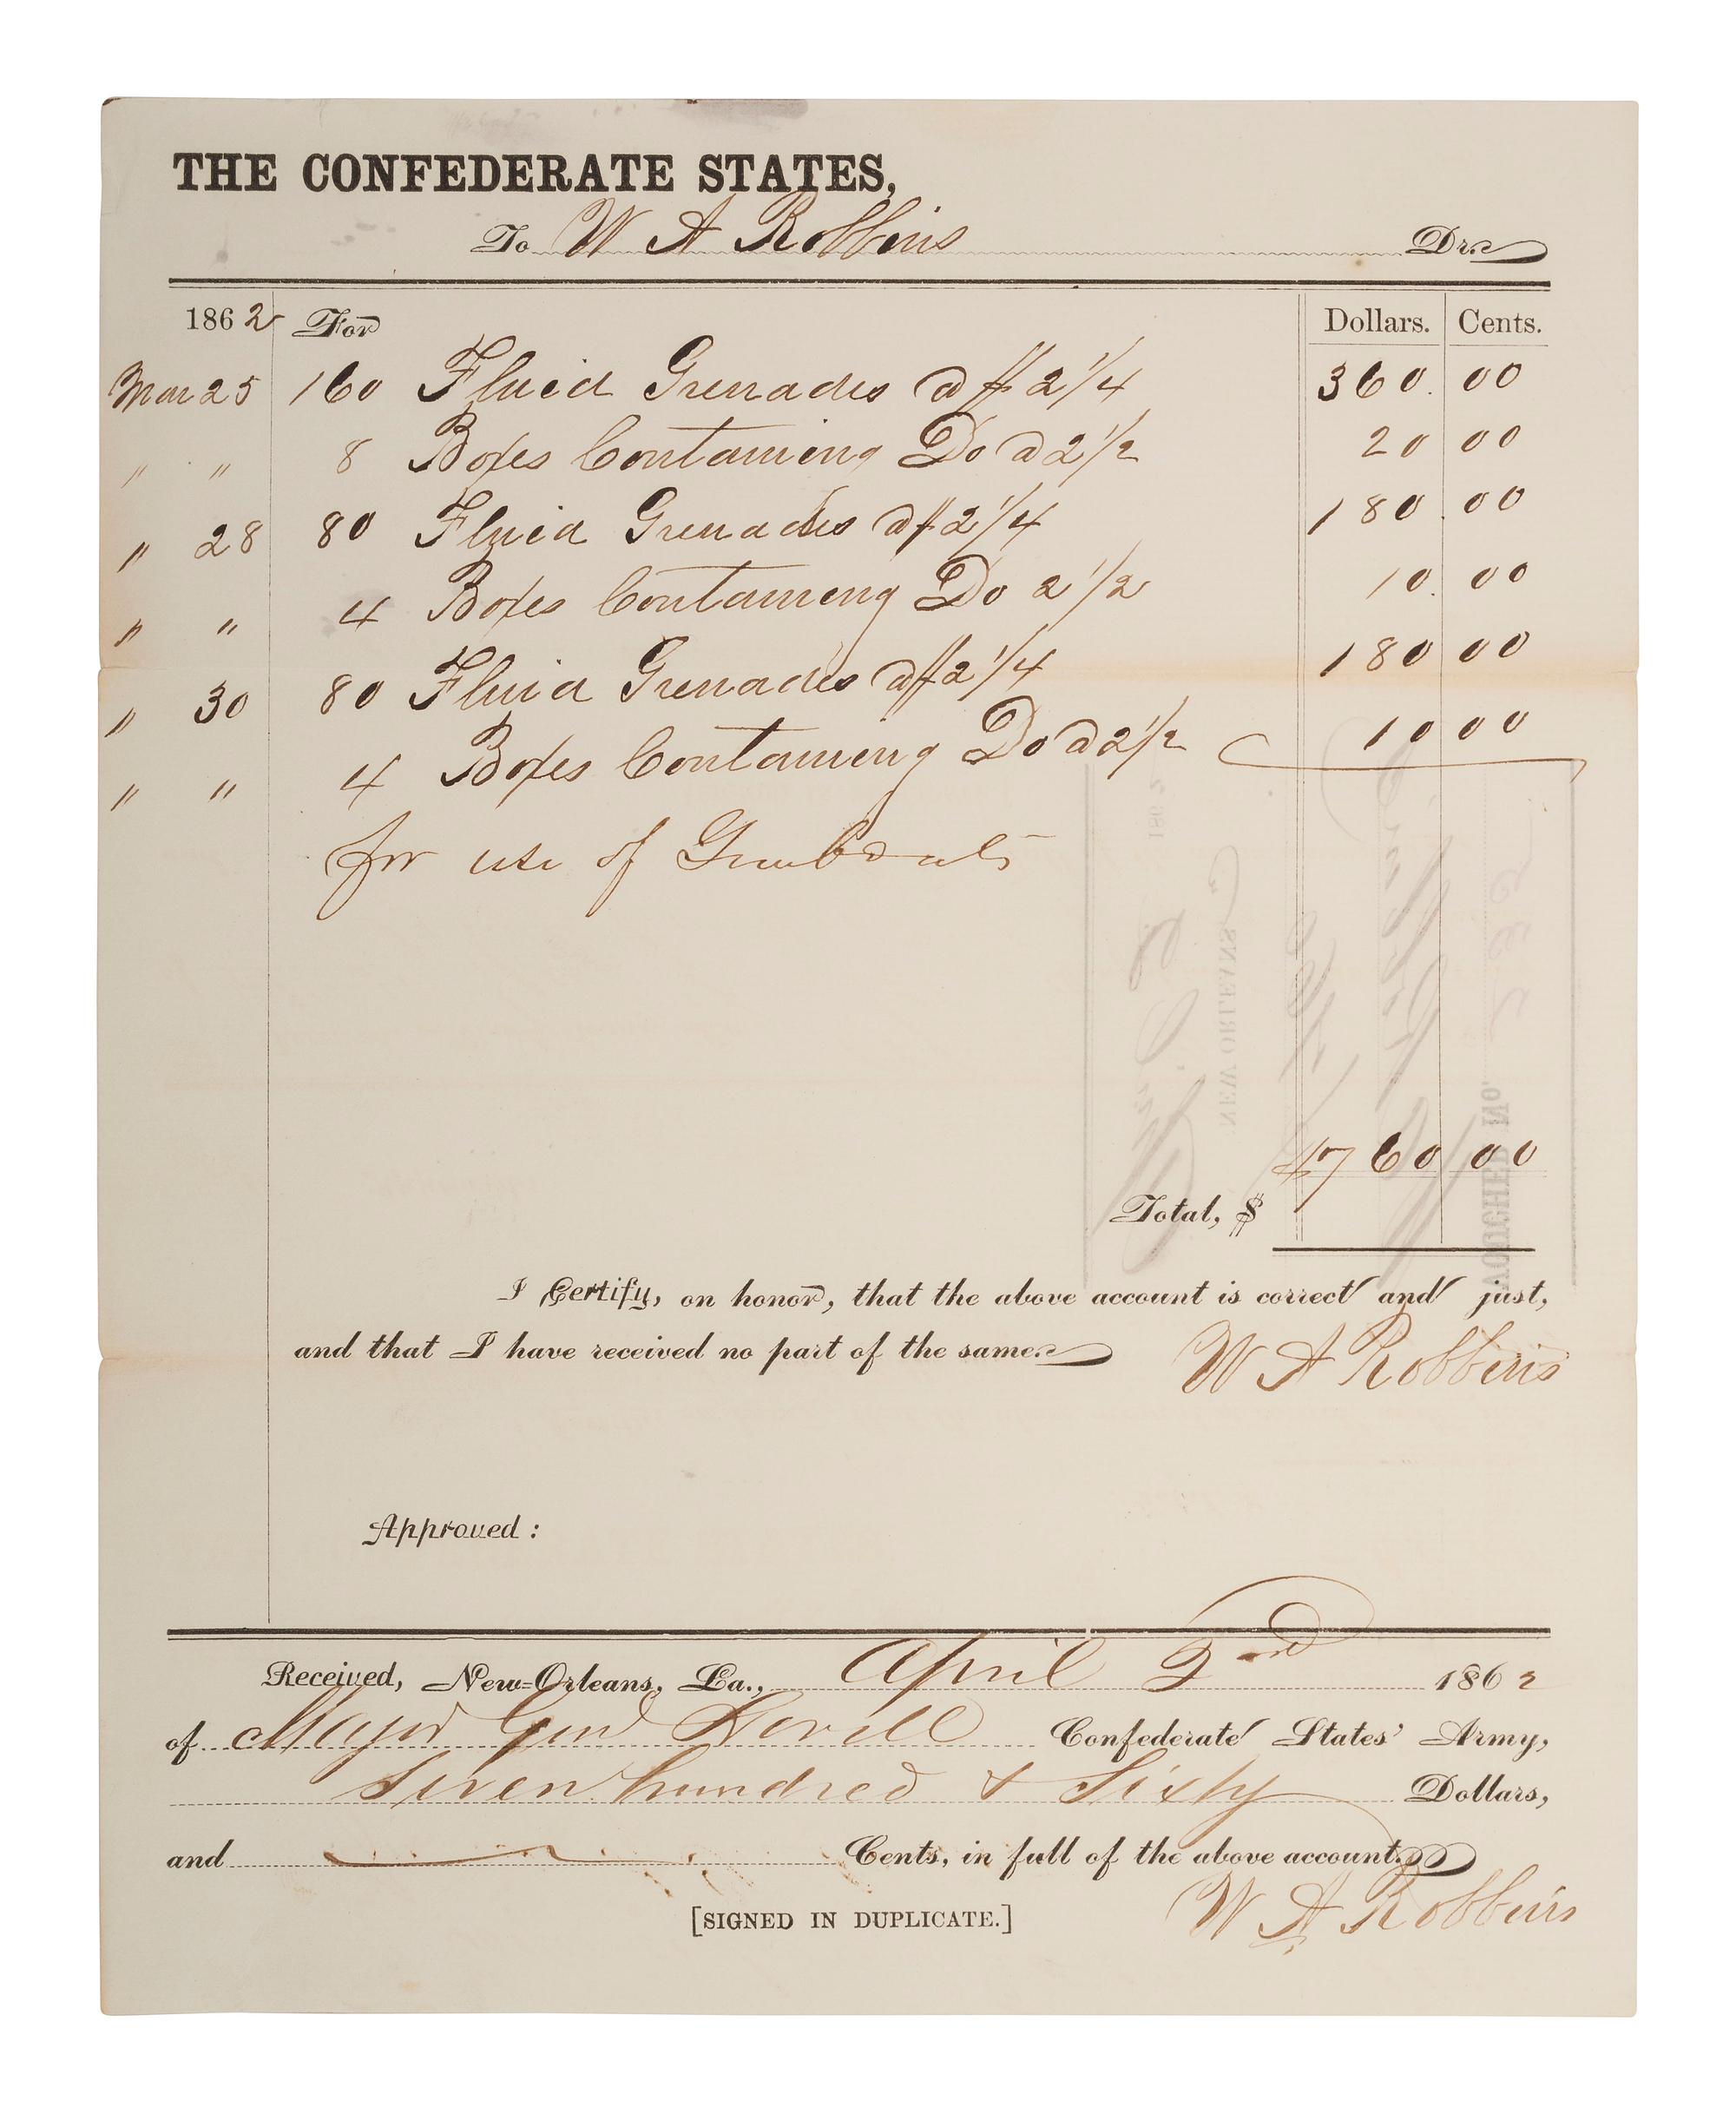 THE CONFEDERATE STATES,
To W A Robbins Dr.
1862 For Dollars. Cents.
Mar 25 160 Fluid Grenades @ $2 1/4 360. 00
" " 8 Boxes Containing Do @ 2 1/2 20 00
" 28 80 Fluid Grenades @ $2 1/4 180 00
" " 4 Boxes Containing Do 2 1/2 10. 00
" 30 80 Fluid Grenades @ $2 1/4 180 00
" " 4 Boxes Containing Do @ 2 1/2 10 00
for use of Gunboats
$760 00
Total, $
I Certify, on honor, that the above account is correct and just,
and that I have received no part of the same. W A Robbins
Approved:
Received, New-Orleans, La., April 2nd 1862
of Major Genl Lovell Confederate States' Army,
Seven hundred & Sixty Dollars,
and Cents, in full of the above account.
W A Robbins
[SIGNED IN DUPLICATE.]
NEW ORLEANS,
VOUCHER No.